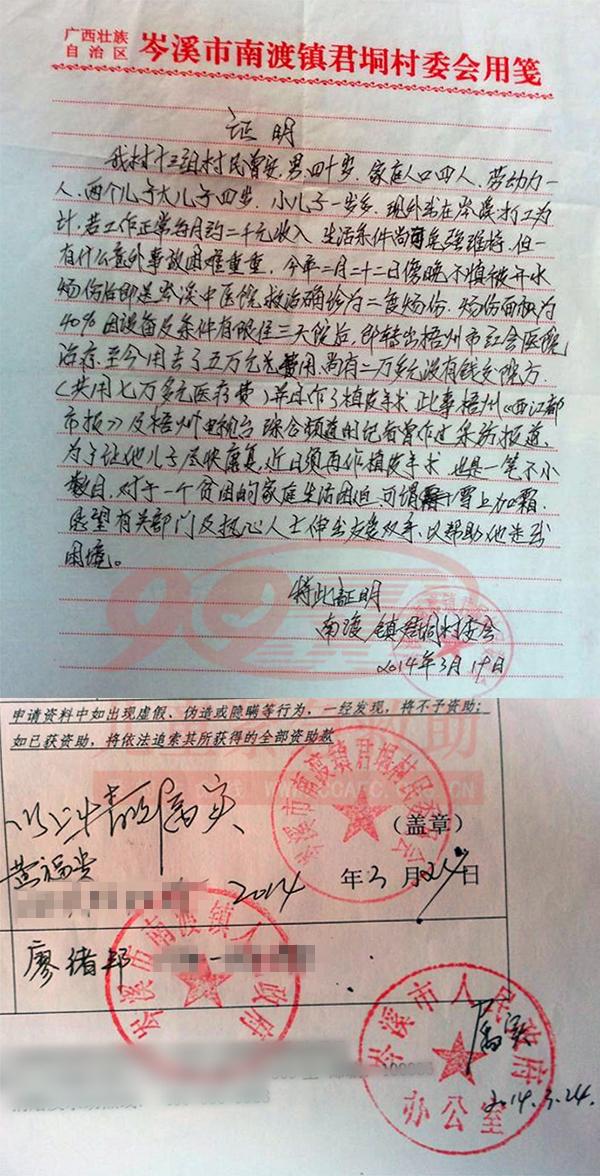 广西壮族
自治区 岑溪市南渡镇君垌村委会用笺
证明
我村十三组村民曾安,男,四十岁,家庭人口四人,劳动力一
人,两个儿子大儿子四岁,小儿子一岁多,现外出在岑溪打工为
计,若工作正常每月约二千元收入,生活条件尚可勉强维持,但一
有什么意外事故困难重重,今年二月二十二日傍晚不慎被开水
烫伤后即送岑溪中医院,救治确诊为二度烫伤,烫伤面积为
40%因设备及条件有限住三天院后,即转出梧州市红会医院
治疗,至今用去了五万元花费用,尚有二万多元没有钱交院方
(共用七万多元医疗费)并且作了植皮手术,此事梧州《西江都
市报》及梧州电视台综合频道的记者曾作过采访报道、
为了让他儿子尽快康复,近日须再作植皮手术,也是一笔不小
数目,对于一个贫困的家庭生活困迫,可谓雪上加霜,
恳望有关部门及热心人士伸出友爱双手,以帮助他走出
困境。
特此证明
南渡镇君垌村委会
2014年3月19日
申请资料中如出现虚假、伪造或隐瞒等行为,一经发现,将不予资助;
如已获资助,将依法追索其所获得的全部资助款
以上情况属实
岑溪市南渡镇君垌村民委员会
(盖章)
黄福贵
2014 年3月24日
廖绪邦
岑溪市南渡镇人民政府
岑溪市人民政府
办公室
属实
2014.3.24.